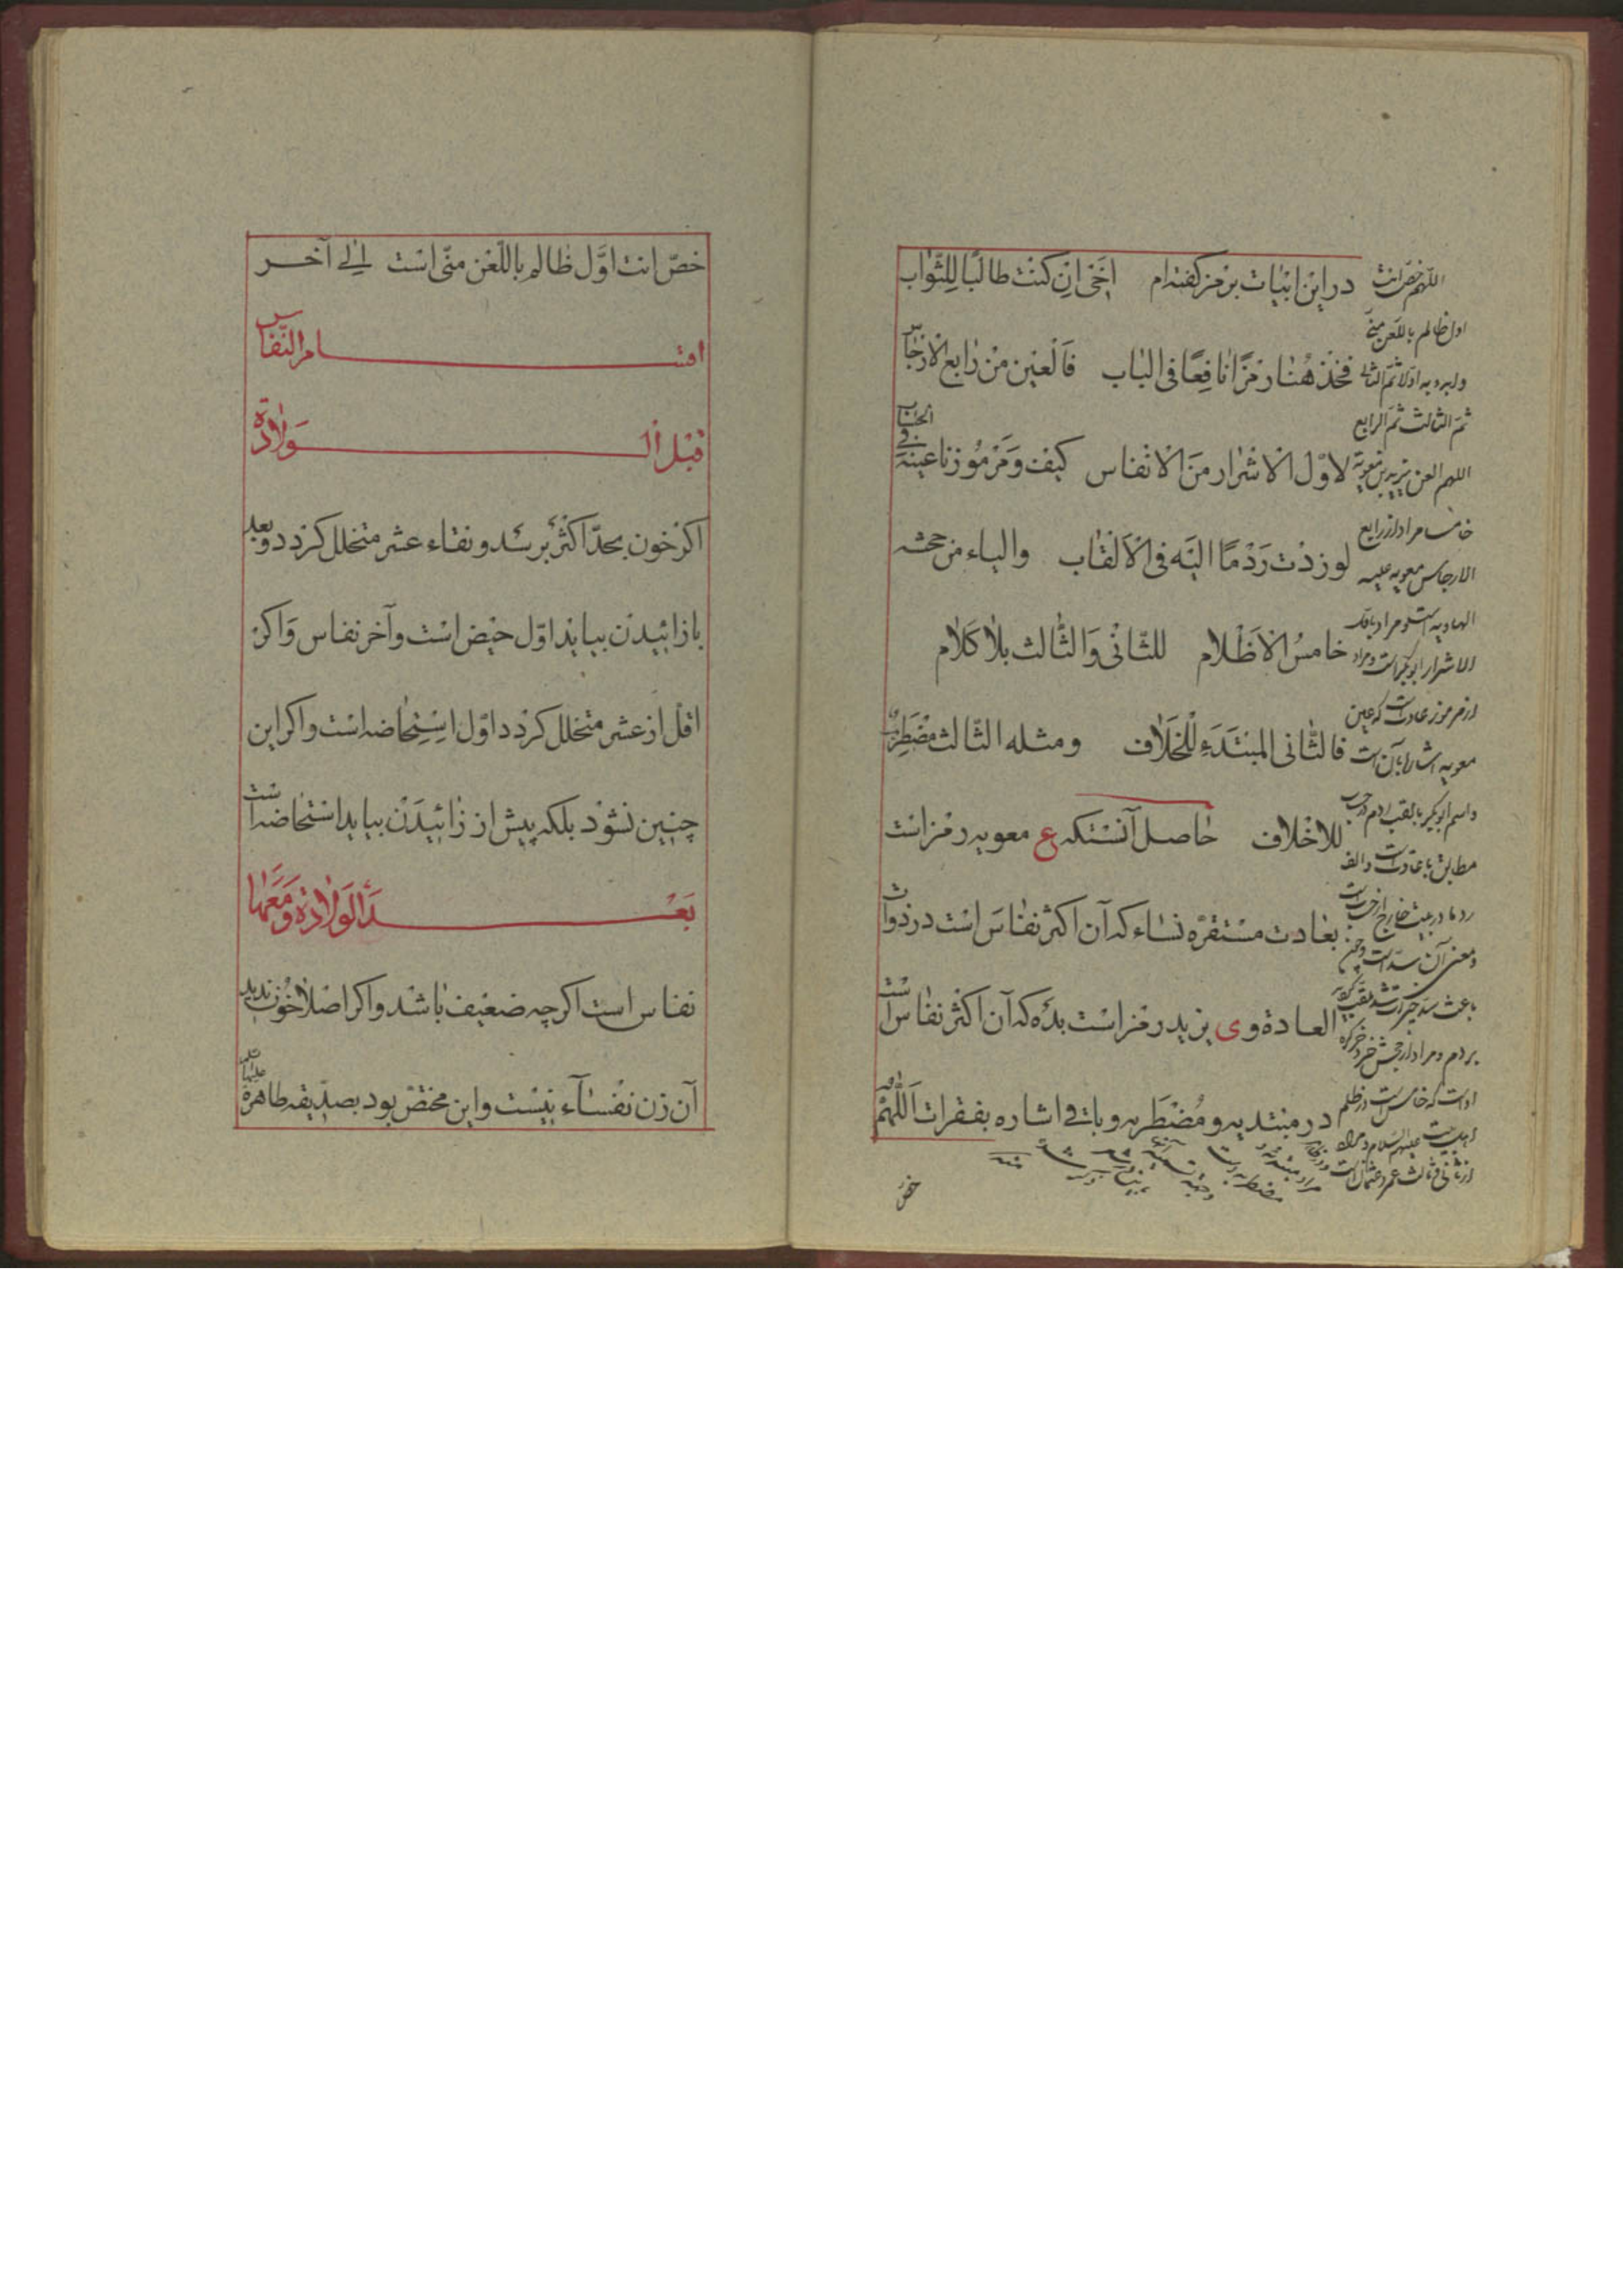 در این ابیات برمز گفته‌ام اخی ان کنت طالبا للثواب
فخذ هنا رمزا نافعا فی الباب فالعین من رابع الارجاس
لاول الاشرار من الانفاس کیف و مرموزنا عینه فی الحساب
لو زدت ردما الیه فی الالقاب والیاء من جحشه
خامس الاظلام للثانی والثالث بلا کلام
فالثانی المبتدء للخلاف ومثله الثالث مضطرب
للاخلاف حاصل آنستکه ع معویه رمز است
بعادت مستقره نساء که آن اکثر نفاس است در ذوات
العادة و ی یزید رمز است بده که آن اکثر نفاس است
در مبتدیه و مضطربه و باقی اشاره بفقرات اللهم
خص
اللهم خص انت
اول ظالم باللعن منی
وابدء به اولا ثم الثانی
ثم الثالث ثم الرابع
اللهم العن یزید بن معویة
خامسا مراد از رابع
الارجاس معویه علیه
الهاویه است و مراد باول
الاشرار ابوبکر است و مراد
از مرموز عادت است که عین
معویه اشاره بآن است
واسم ابوبکر بالقب ردم در حساب
مطابق با عادت است والف
ردما در بیت خارج از حساب است
ومعنی آن سد است
بردم و مراد از جحش
اوست که خامس است در ظلم
اهلبیت علیهم السلام و مراد
از ثانی و ثالث عمر و عثمان است
خص انت اول ظالم باللعن منی است الی آخر
اقسام النفاس
قبل الولادة
اکر خون بحد اکثر برسد و نقاء عشر متخلل کردد و بعد
باز ائیدن بیاید اول حیض است و آخر نفاس و اکر
اقل از عشر متخلل کردد اول استحاضه است و اکر این
چنین نشود بلکه پیش از زائیدن بیاید استحاضه است
بعد الولادة و معها
نفاس است اکر چه ضعیف باشد و اکر اصلا خون ندید
آن زن نفسآء نیست و این مختص بود بصدیقه طاهره